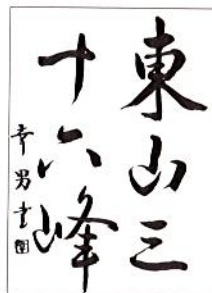 東山三
十六峰
幸男書